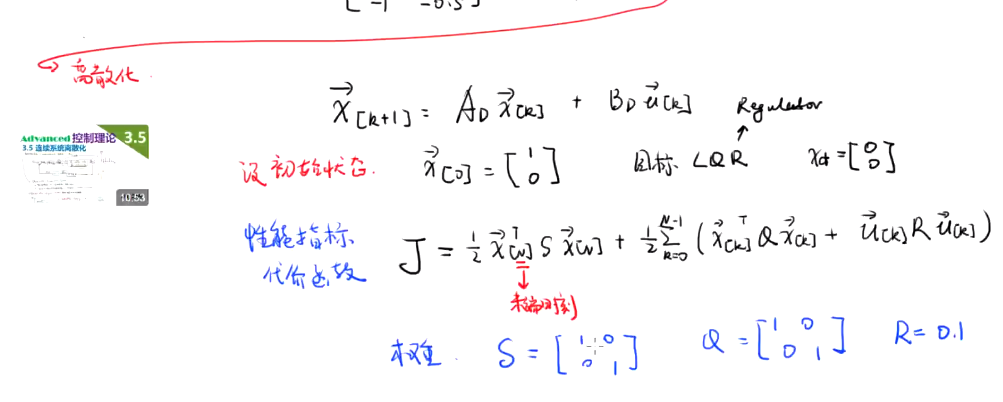 [-1 -0.5]
离散化
x⃗[k+1] = A_D x⃗[k] + B_D u⃗[k]
Regulator
Advanced 控制理论 3.5
3.5 连续系统离散化
10:53
设初始状态. x⃗[0] = [1 0] 目标. LQR x_d = [0 0]
性能指标、
代价函数
J = 1/2 x⃗[N]ᵀ S x⃗[N] + 1/2 Σ_{k=0}^{N-1} (x⃗[k]ᵀ Q x⃗[k] + u⃗[k] R u⃗[k])
末端时刻
权重. S = [1 0 0 1] Q = [1 0 0 1] R = 0.1